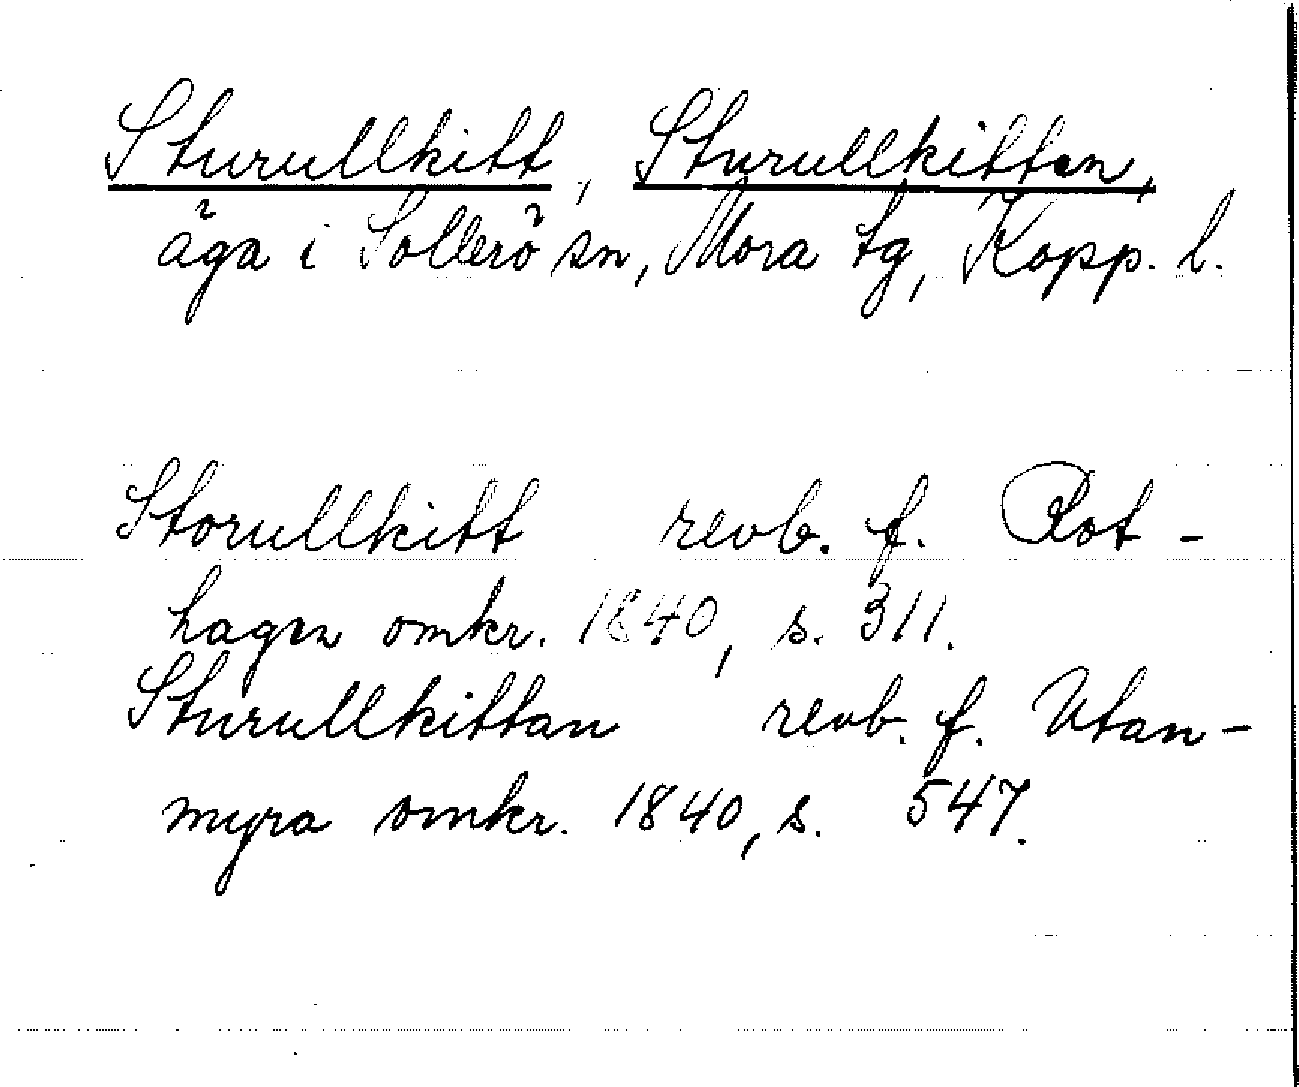 Sturullkitt, Sturullkitten,
äga i Sollerö sn, Mora tg, Kopp. l.
Storullkitt revb. f. Rot-
hagen omkr. 1840, s. 311.
Sturullkittan revb. f. Utan-
myra omkr. 1840, s. 547.